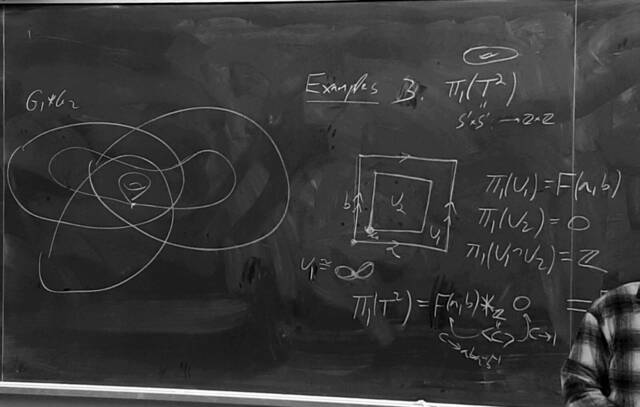 G₁*G₂
Examples 3. π₁(T²)
S¹×S¹ → Z×Z
b
U₂
U₁
a
x₀
U₁ ≅ ∞
π₁(U₁) = F(a,b)
π₁(U₂) = 0
π₁(U₁∩U₂) = Z
π₁(T²) = F(a,b) *_Z 0 =
c→aba⁻¹b⁻¹ <c> c→1